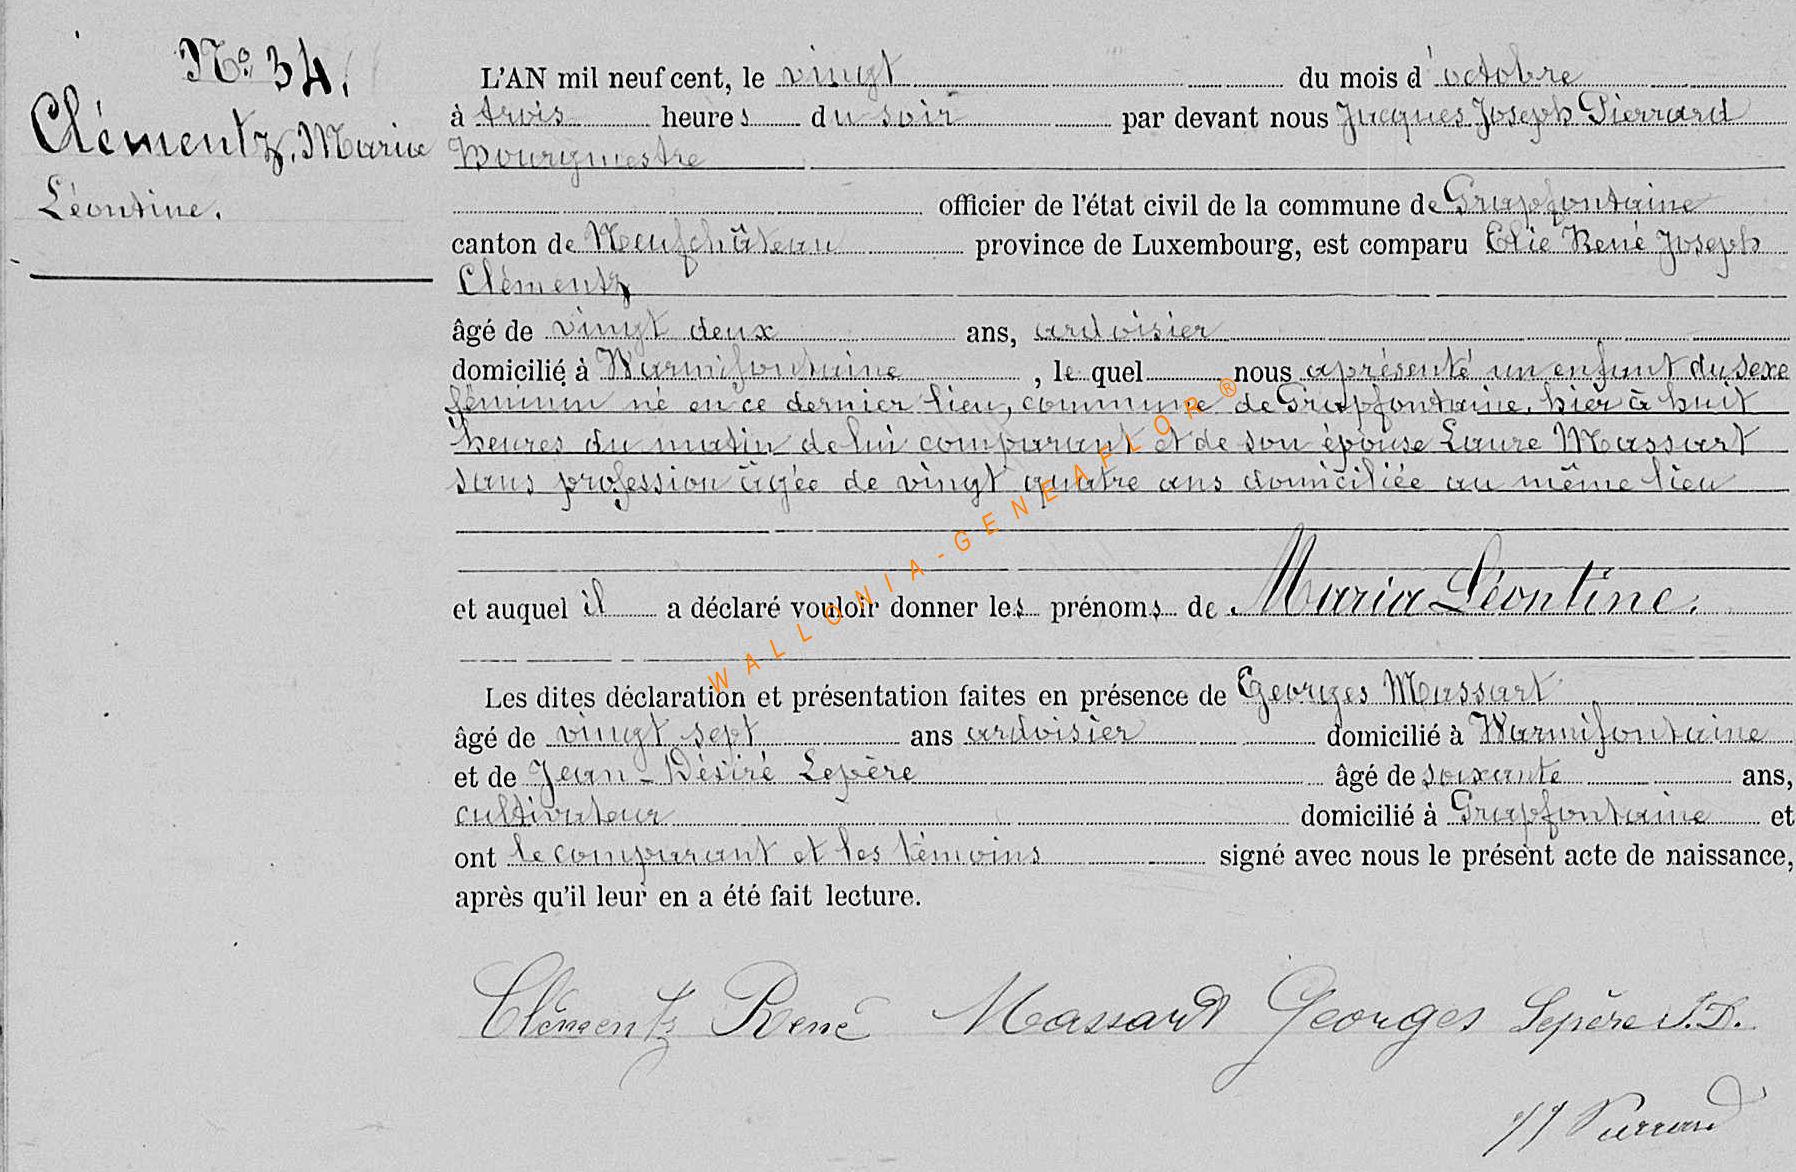 N° 34.
Clémentz, Maria
Léontine.
L'AN mil neuf cent, le vingt du mois d'octobre
à trois heures du soir par devant nous Jacques Joseph Pierrard
Bourgmestre
officier de l'état civil de la commune de Grapfontaine
canton de Neufchâteau province de Luxembourg, est comparu Elie René Joseph
Clémentz
âgé de vingt deux ans, ardoisier
domicilié à Warmifontaine, le quel nous a présenté un enfant du sexe
féminin né en ce dernier lieu, commune de Grapfontaine, hier à huit
heures du matin de lui comparant et de son épouse Laure Massart
sans profession âgée de vingt quatre ans domiciliée au même lieu
et auquel il a déclaré vouloir donner les prénoms de Maria Léontine.
Les dites déclaration et présentation faites en présence de Georges Massart
âgé de vingt sept ans ardoisier domicilié à Warmifontaine
et de Jean-Désiré Lepère âgé de soixante ans,
cultivateur domicilié à Grapfontaine et
ont le comparant et les témoins signé avec nous le présent acte de naissance,
après qu'il leur en a été fait lecture.
Clémentz René Massart Georges Lepère J.D.
JJ Pierrard
WALLONIA-GENEAFLOR®